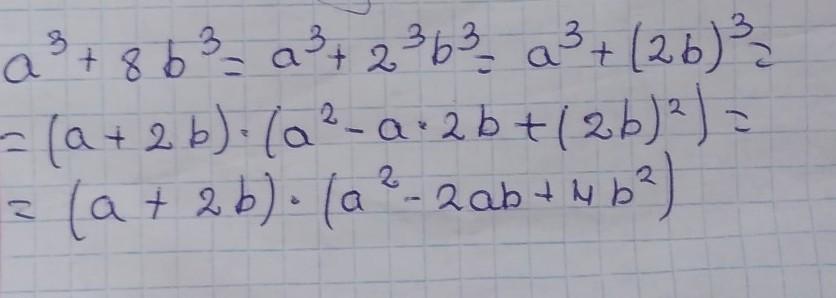 a³ + 8b³ = a³ + 2³b³ = a³ + (2b)³ =
= (a + 2b) · (a² - a · 2b + (2b)²) =
= (a + 2b) · (a² - 2ab + 4b²)